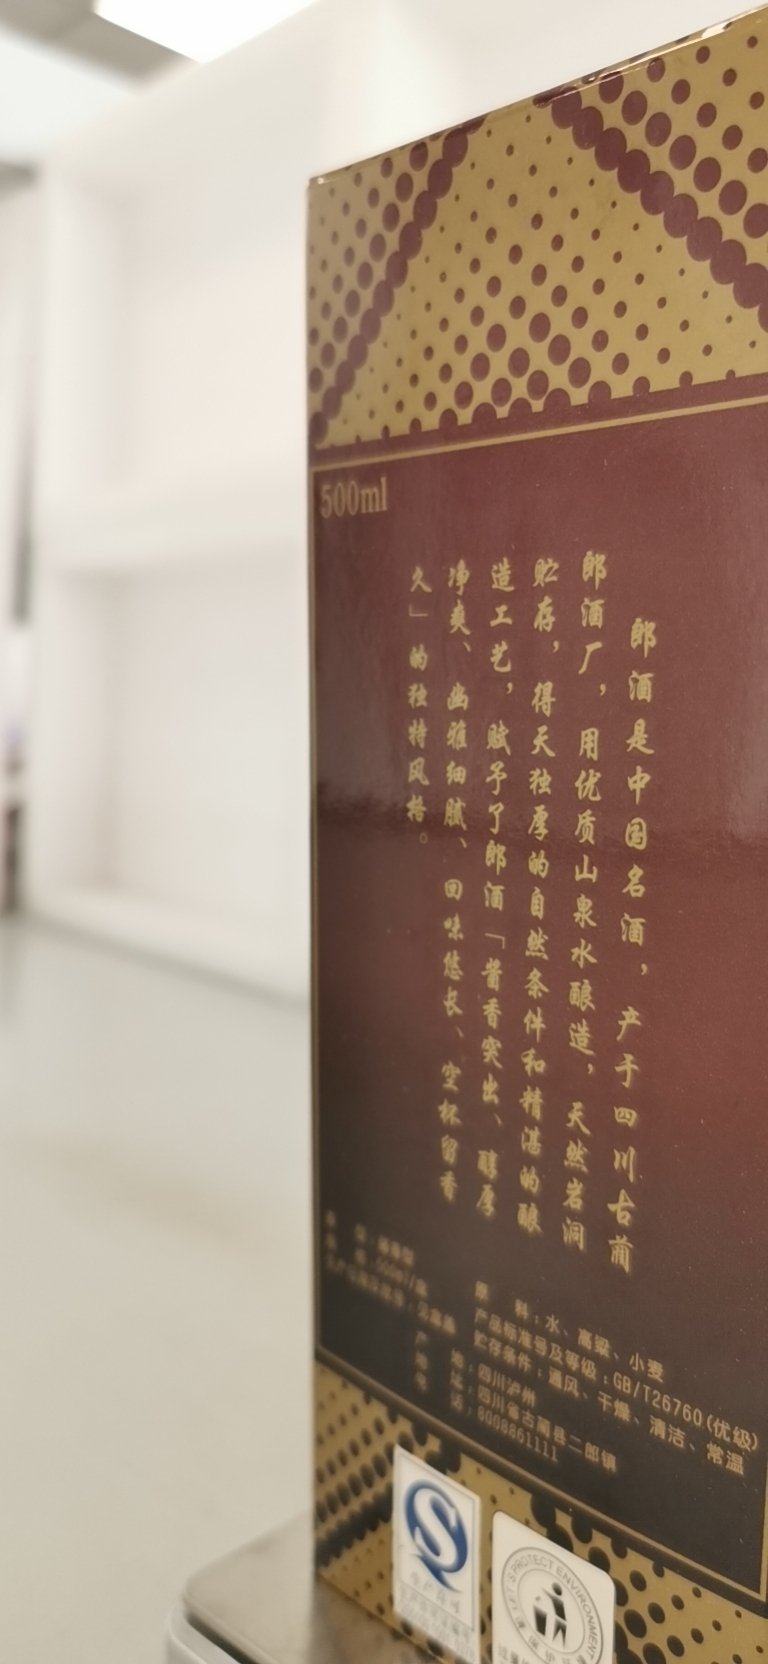 500ml
郎酒是中国名酒，产于四川古蔺
郎酒厂，用优质山泉水酿造，天然岩洞
贮存，得天独厚的自然条件和精湛的酿
造工艺，赋予了郎酒「酱香突出、醇厚
净爽、幽雅细腻、回味悠长、空杯留香
久」的独特风格。
原 料：水、高粱、小麦
产品标准号及等级：GB/T26760(优级)
贮存条件：通风、干燥、清洁、常温
产 地：四川泸州
地 址：四川省古蔺县二郎镇
电 话：8008861111
LET'S PROTECT ENVIRONMENT